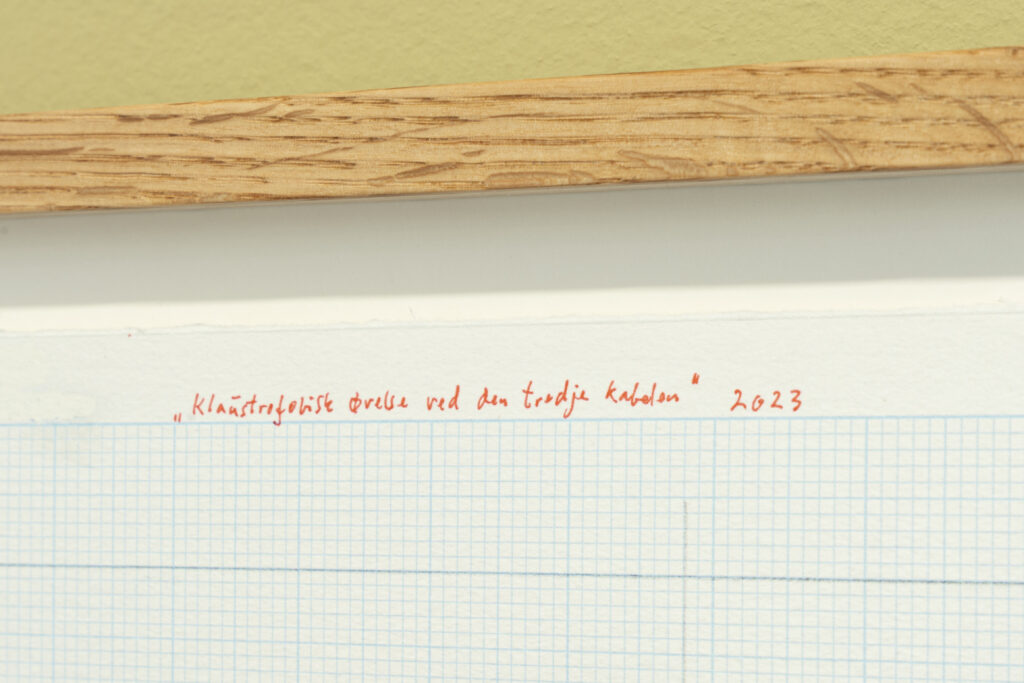 „Klaustrofobisk øvelse ved den tredje kabelen" 2023